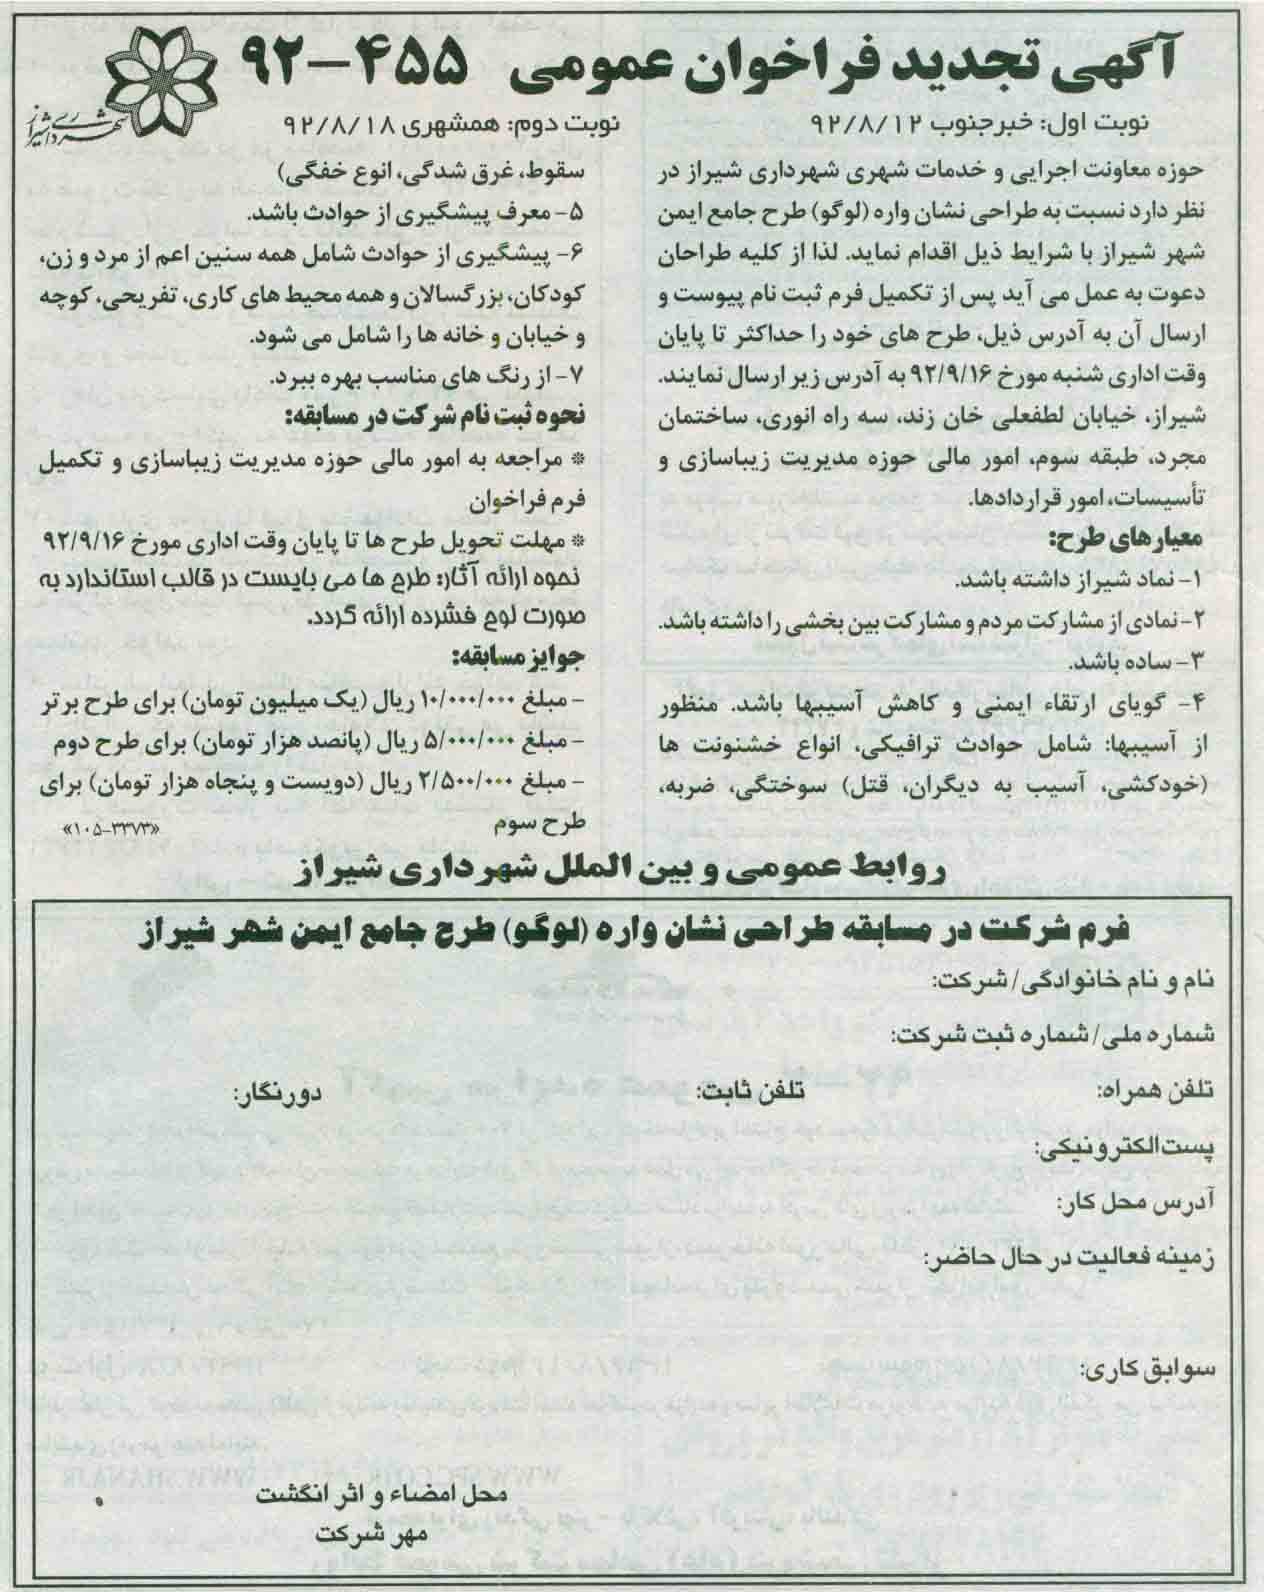 آگهی تجدید فراخوان عمومی ۴۵۵-۹۲
شهرداری شیراز
نوبت اول: خبرجنوب ۹۲/۸/۱۲
نوبت دوم: همشهری ۹۲/۸/۱۸
حوزه معاونت اجرایی و خدمات شهری شهرداری شیراز در
نظر دارد نسبت به طراحی نشان واره (لوگو) طرح جامع ایمن
شهر شیراز با شرایط ذیل اقدام نماید. لذا از کلیه طراحان
دعوت به عمل می آید پس از تکمیل فرم ثبت نام پیوست و
ارسال آن به آدرس ذیل، طرح های خود را حداکثر تا پایان
وقت اداری شنبه مورخ ۹۲/۹/۱۶ به آدرس زیر ارسال نمایند.
شیراز، خیابان لطفعلی خان زند، سه راه انوری، ساختمان
مجرد، طبقه سوم، امور مالی حوزه مدیریت زیباسازی و
تأسیسات، امور قراردادها.
معیارهای طرح:
۱- نماد شیراز داشته باشد.
۲- نمادی از مشارکت مردم و مشارکت بین بخشی را داشته باشد.
۳- ساده باشد.
۴- گویای ارتقاء ایمنی و کاهش آسیبها باشد. منظور
از آسیبها: شامل حوادث ترافیکی، انواع خشنونت ها
(خودکشی، آسیب به دیگران، قتل) سوختگی، ضربه،
سقوط، غرق شدگی، انوع خفگی)
۵- معرف پیشگیری از حوادث باشد.
۶- پیشگیری از حوادث شامل همه سنین اعم از مرد و زن،
کودکان، بزرگسالان و همه محیط های کاری، تفریحی، کوچه
و خیابان و خانه ها را شامل می شود.
۷- از رنگ های مناسب بهره ببرد.
نحوه ثبت نام شرکت در مسابقه:
* مراجعه به امور مالی حوزه مدیریت زیباسازی و تکمیل
فرم فراخوان
* مهلت تحویل طرح ها تا پایان وقت اداری مورخ ۹۲/۹/۱۶
نحوه ارائه آثار: طرح ها می بایست در قالب استاندارد به
صورت لوح فشرده ارائه گردد.
جوایز مسابقه:
- مبلغ ۱۰/۰۰۰/۰۰۰ ریال (یک میلیون تومان) برای طرح برتر
- مبلغ ۵/۰۰۰/۰۰۰ ریال (پانصد هزار تومان) برای طرح دوم
- مبلغ ۲/۵۰۰/۰۰۰ ریال (دویست و پنجاه هزار تومان) برای
طرح سوم
«۱۰۵-۳۳۷۳»
روابط عمومی و بین الملل شهرداری شیراز
فرم شرکت در مسابقه طراحی نشان واره (لوگو) طرح جامع ایمن شهر شیراز
نام و نام خانوادگی/ شرکت:
شماره ملی/ شماره ثبت شرکت:
تلفن همراه: تلفن ثابت: دورنگار:
پست‌الکترونیکی:
آدرس محل کار:
زمینه فعالیت در حال حاضر:
سوابق کاری:
محل امضاء و اثر انگشت
مهر شرکت